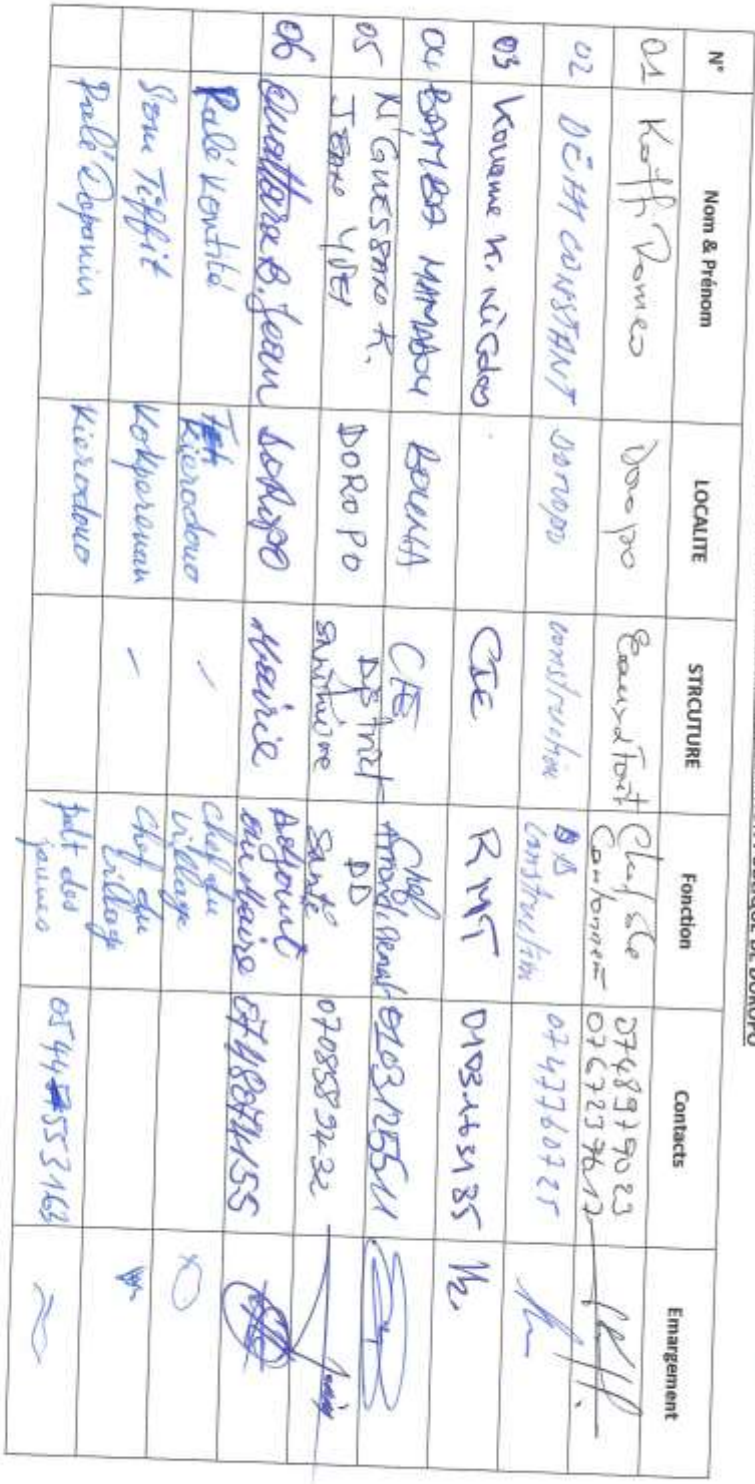 PUBLIQUE DE DOROPO
N° Nom & Prénom LOCALITE STRCUTURE Fonction Contacts Emargement
01 Koffi Romeo Doropo Eaux et Forêt Chef de Cantonnem 0748979023
0767237617
02 CONSTANT Doropo construction construction 0747760725
03 Kouame K. Nicolas CIE RMT 0103163185
04 BAMBA MAMADOU BOUNA CIE Chef
05 N'GUESSAN K.
JEAN YVES DOROPO District
sanitaire DD
Santé 0708589432
06 Ouattara B. Jean Doropo Mairie Adjoint
au Maire 0748074155
Palé Kontité Kierodouo - Chef du
village
Som Tiffit - Chef du
village
Palé Kierodouo Pdt des
jeunes